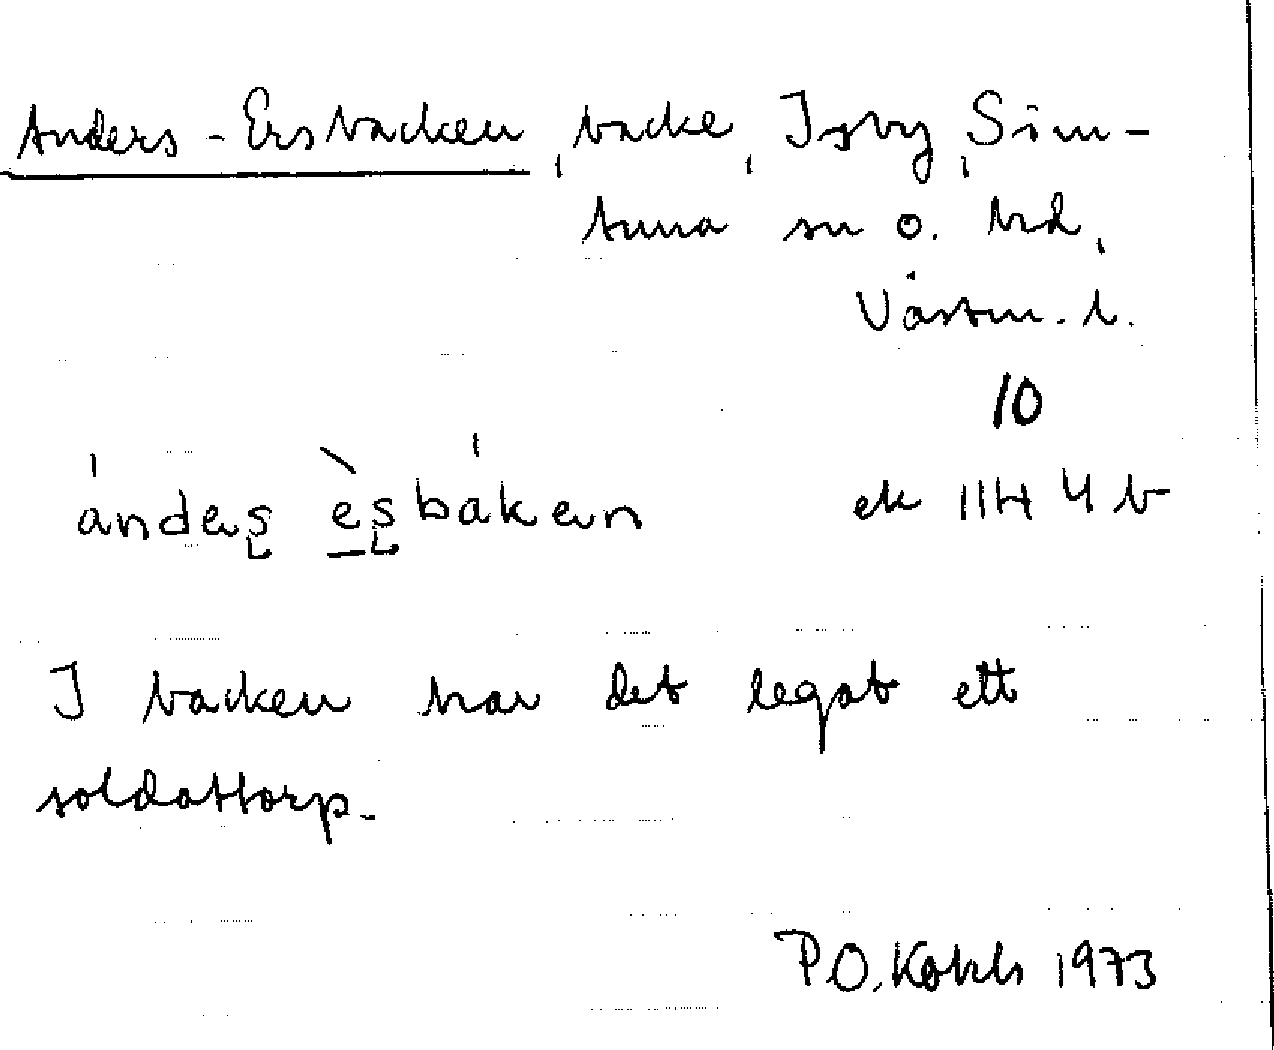 Anders-Ersbacken, backe, Isby, Sim-
tuna sn o. hd,
Västm. l.
10
ándeṣ èṣbáken ek 11H 4 b
I backen har det legat ett
soldattorp.
P.O. 1973